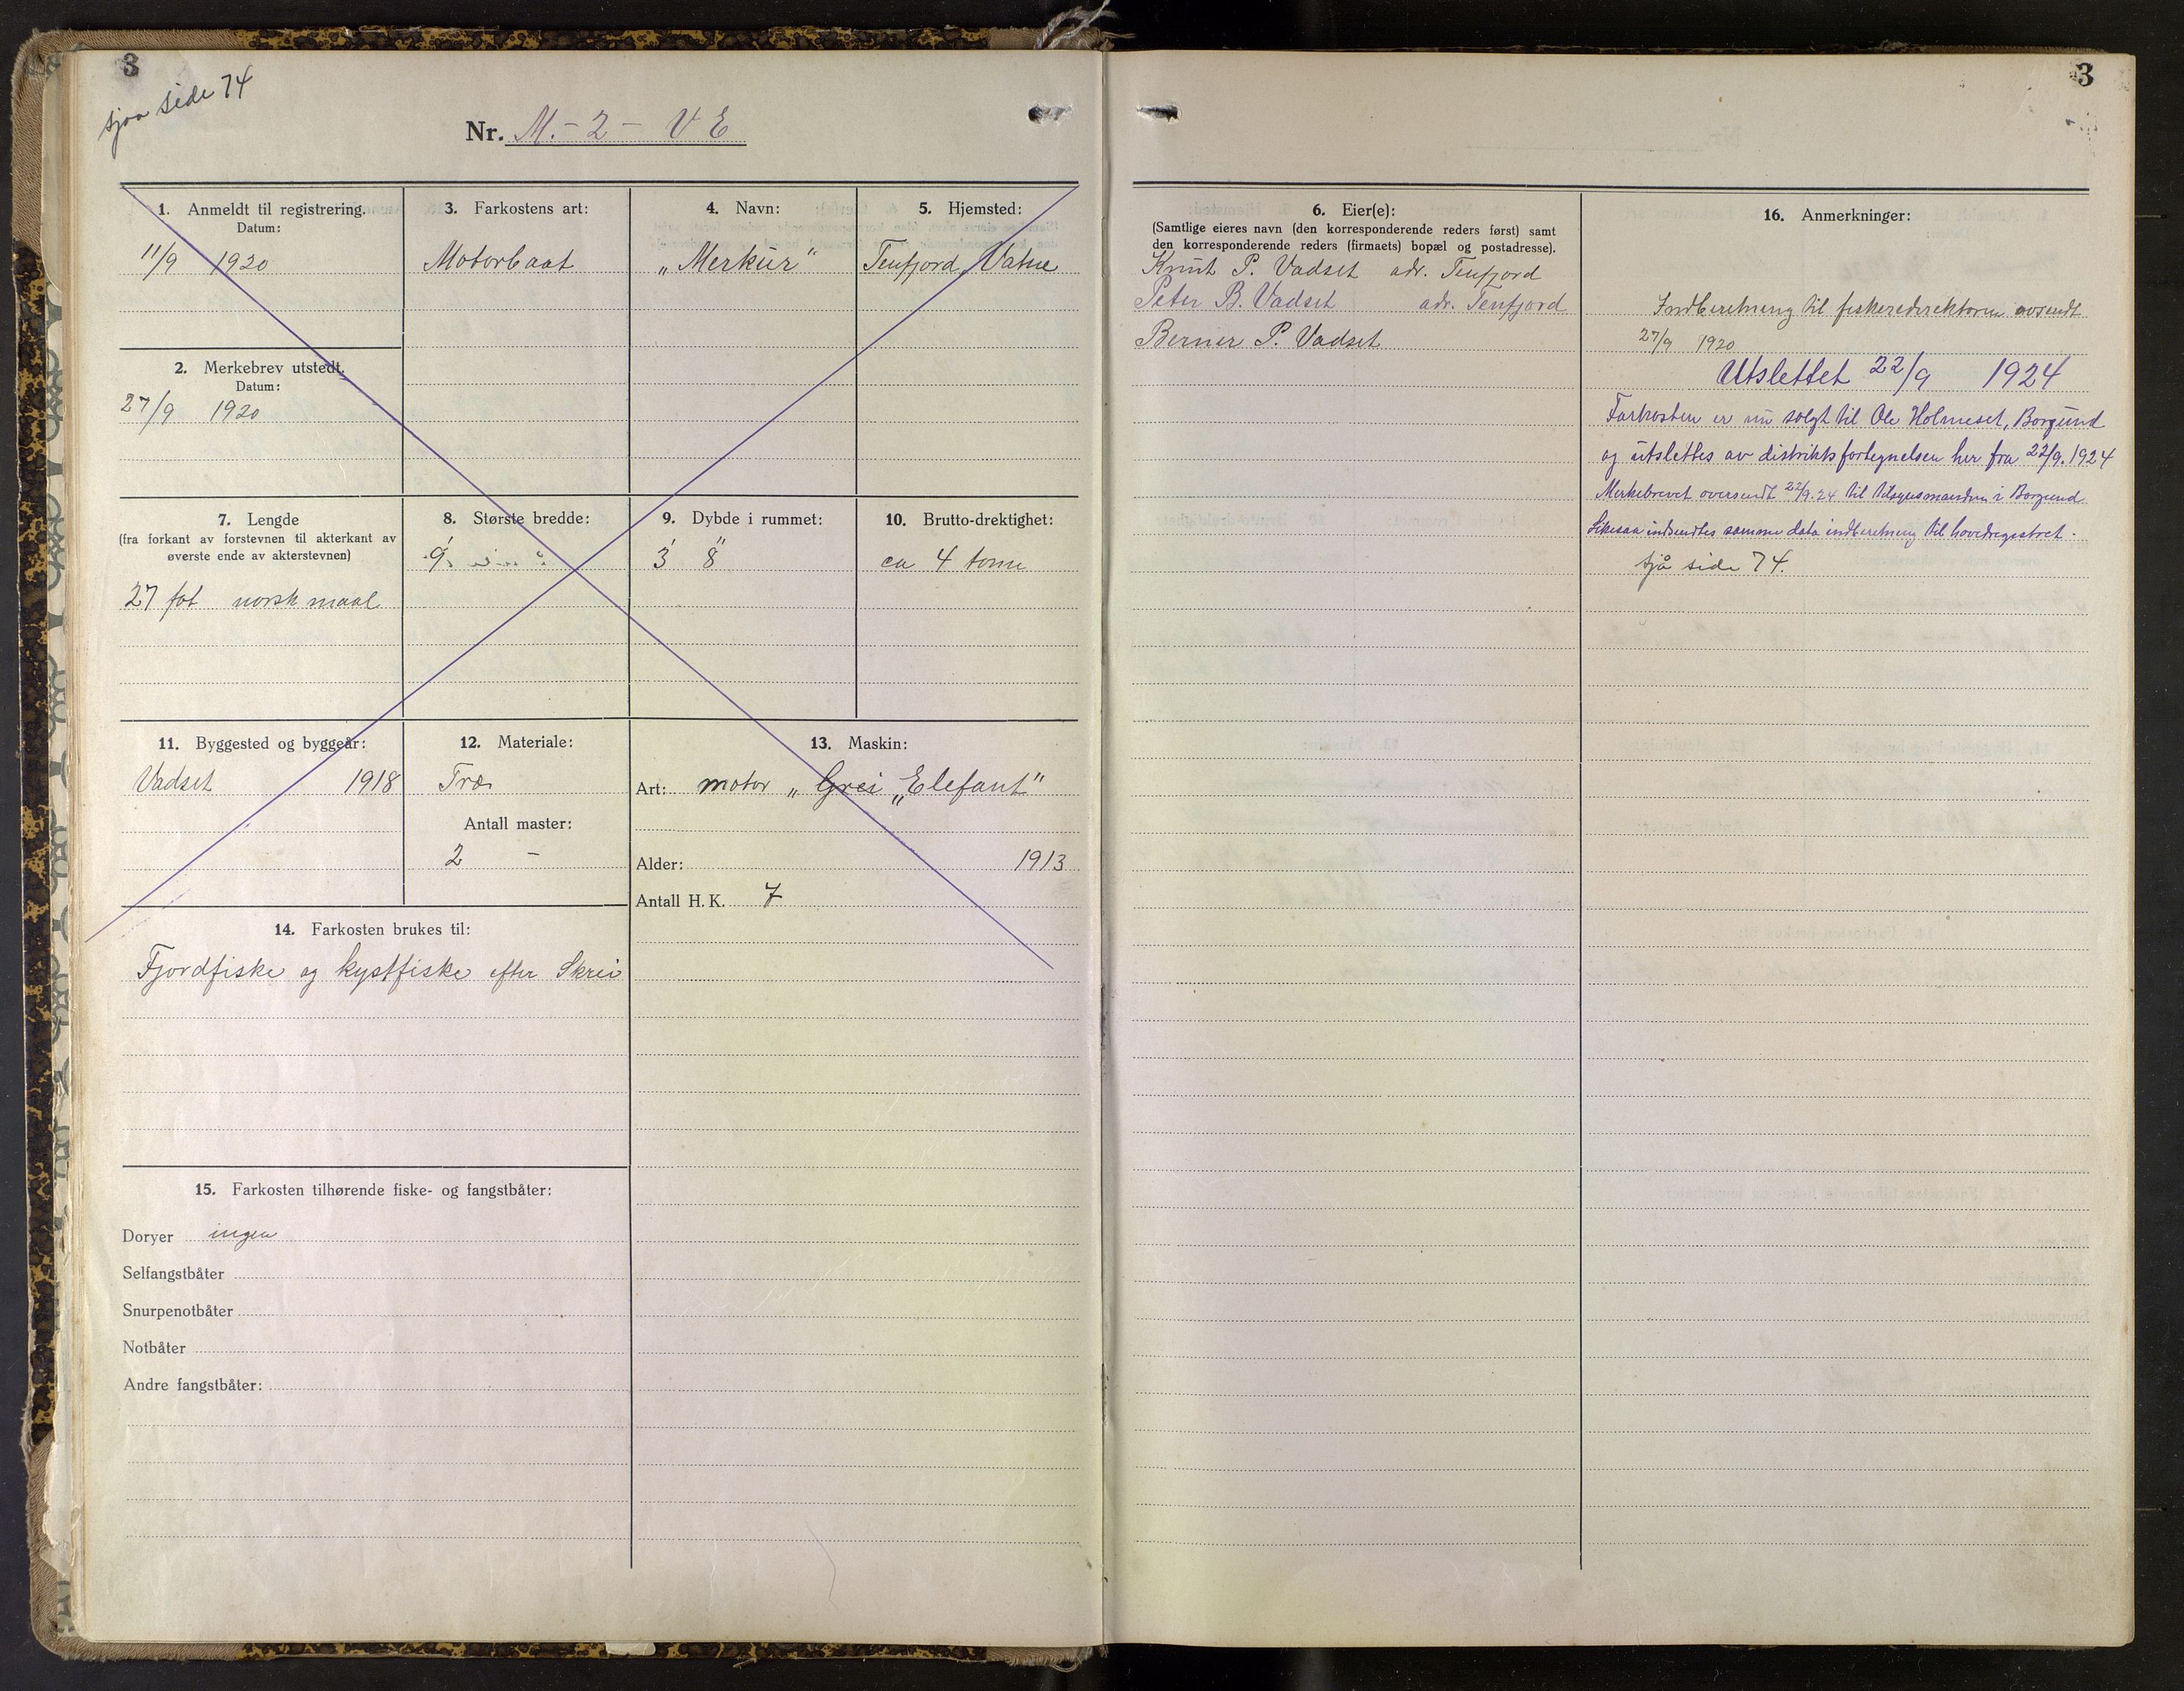 3
sjaa side 74
Nr. M.- 2 - V E
1. Anmeldt til registrering.
Datum:
11/9 1920
2. Merkebrev utstedt.
Datum:
27/9 1920
3. Farkostens art:
Motorbaat
4. Navn:
„Merkur"
5. Hjemsted:
Tenfjord, Vatne
7. Lengde
(fra forkant av forstevnen til akterkant av
øverste ende av akterstevnen)
27 fot norsk maal
8. Største bredde:
9'
9. Dybde i rummet:
3' 8"
10. Brutto-drektighet:
ca 4 tonn
11. Byggested og byggeår:
Vadset 1918
12. Materiale:
Træ
Antall master:
2 -
13. Maskin:
Art: motor „ Grei „Elefant"
Alder: 1913
Antall H. K. 7
14. Farkosten brukes til:
Fjordfiske og kystfiske efter Skrei
15. Farkosten tilhørende fiske- og fangstbåter:
Doryer ingen
Selfangstbåter
Snurpenotbåter
Notbåter
Andre fangstbåter:
3
6. Eier(e):
(Samtlige eieres navn (den korresponderende reders først) samt
den korresponderende reders (firmaets) bopæl og postadresse).
Knut P. Vadset adr. Tenfjord
Peter B. Vadset adr. Tenfjord
Berner P. Vadset
16. Anmerkninger:
Indberetning til fiskeredirektøren avsendt
27/9 1920
Utslettet 22/9 1924
Farkosten er nu solgt til Ole Holmeset, Borgund
og utslettes av distriktsfortegnelsen her fra 22/9.1924
Merkebrevet oversendt 22/9.24 til tilsynsmanden i Borgund.
Likesaa indsendtes samme dato indberetning til hovedregistret.
Sjå side 74.